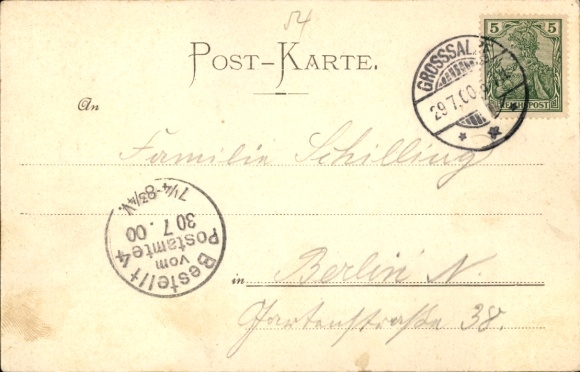 54
POST-KARTE.
5 5
REICHSPOST
GROSSSALZE
29.7.00
An
Familie Schilling
Bestellt
vom
Postamte 4
30 7. 00
7 1/4-8 3/4 V.
in Berlin N.
Gartenstraße 38.